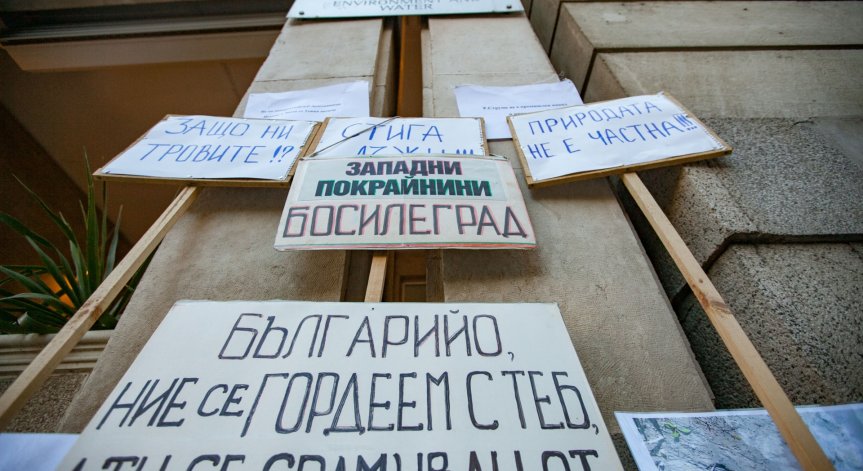 ENVIRONMENT AND
WATER
ЗАЩО НИ
ТРОВИТЕ !?
СТИГА
ПРИРОДАТА
НЕ Е ЧАСТНА!!!
ЗАПАДНИ
ПОКРАЙНИНИ
БОСИЛЕГРАД
БЪЛГАРИЙО,
НИЕ СЕ ГОРДЕЕМ С ТЕБ,
А ТИ СЕ СРАМУВАШ ОТ